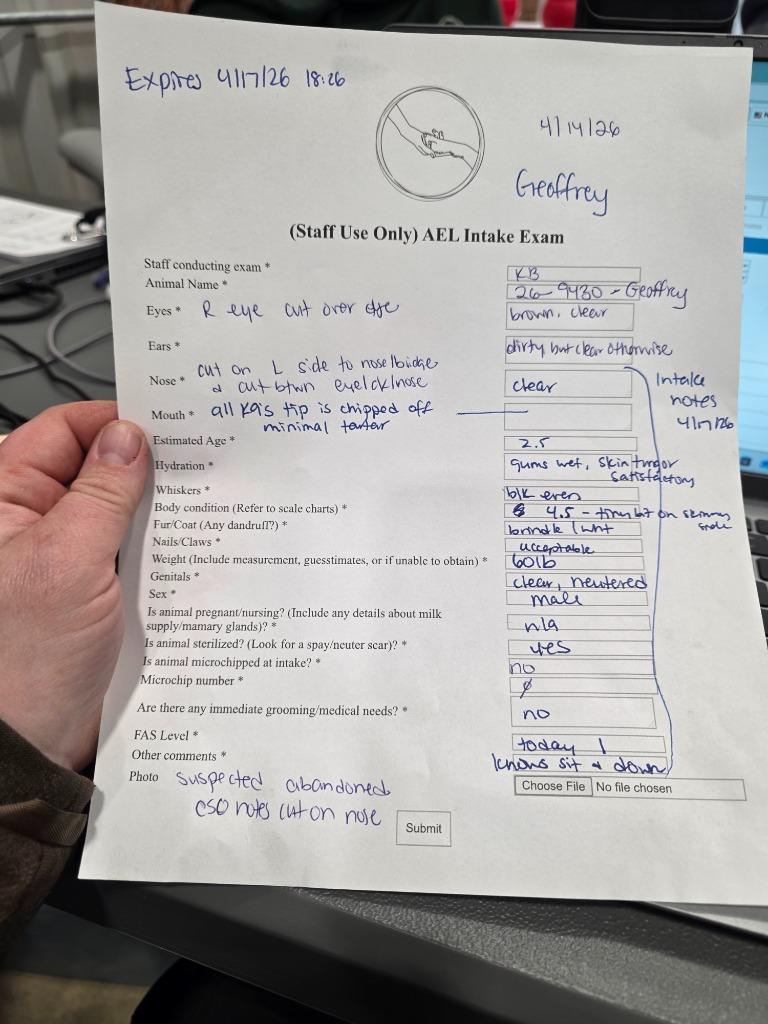 Expires 4/17/26 18:26
4/14/26
Geoffrey
(Staff Use Only) AEL Intake Exam
Staff conducting exam * KB
Animal Name * 26-9430 - Geoffrey
Eyes * R eye cut over eye brown, clear
Ears * dirty but clear otherwise
cut on L side to nose/bridge
Nose * & cut btwn eye/ck/nose clear
Intake
notes
4/17/26
Mouth * all K9s tip is chipped off
minimal tartar
Estimated Age * 2.5
Hydration * gums wet, skin turgor
satisfactory
Whiskers * blk even
Body condition (Refer to scale charts) * 4.5 - tiny bit on skinny
side
Fur/Coat (Any dandruff?) * brindle / wht
Nails/Claws * acceptable
Weight (Include measurement, guesstimates, or if unable to obtain) * 60lb
Genitals * clear, neutered
Sex * male
Is animal pregnant/nursing? (Include any details about milk
supply/mamary glands)? * n/a
Is animal sterilized? (Look for a spay/neuter scar)? * yes
Is animal microchipped at intake? * no
Microchip number * ∅
Are there any immediate grooming/medical needs? * no
FAS Level * today 1
Other comments * knows sit & down
Photo suspected abandoned Choose File No file chosen
CSO notes cut on nose
Submit